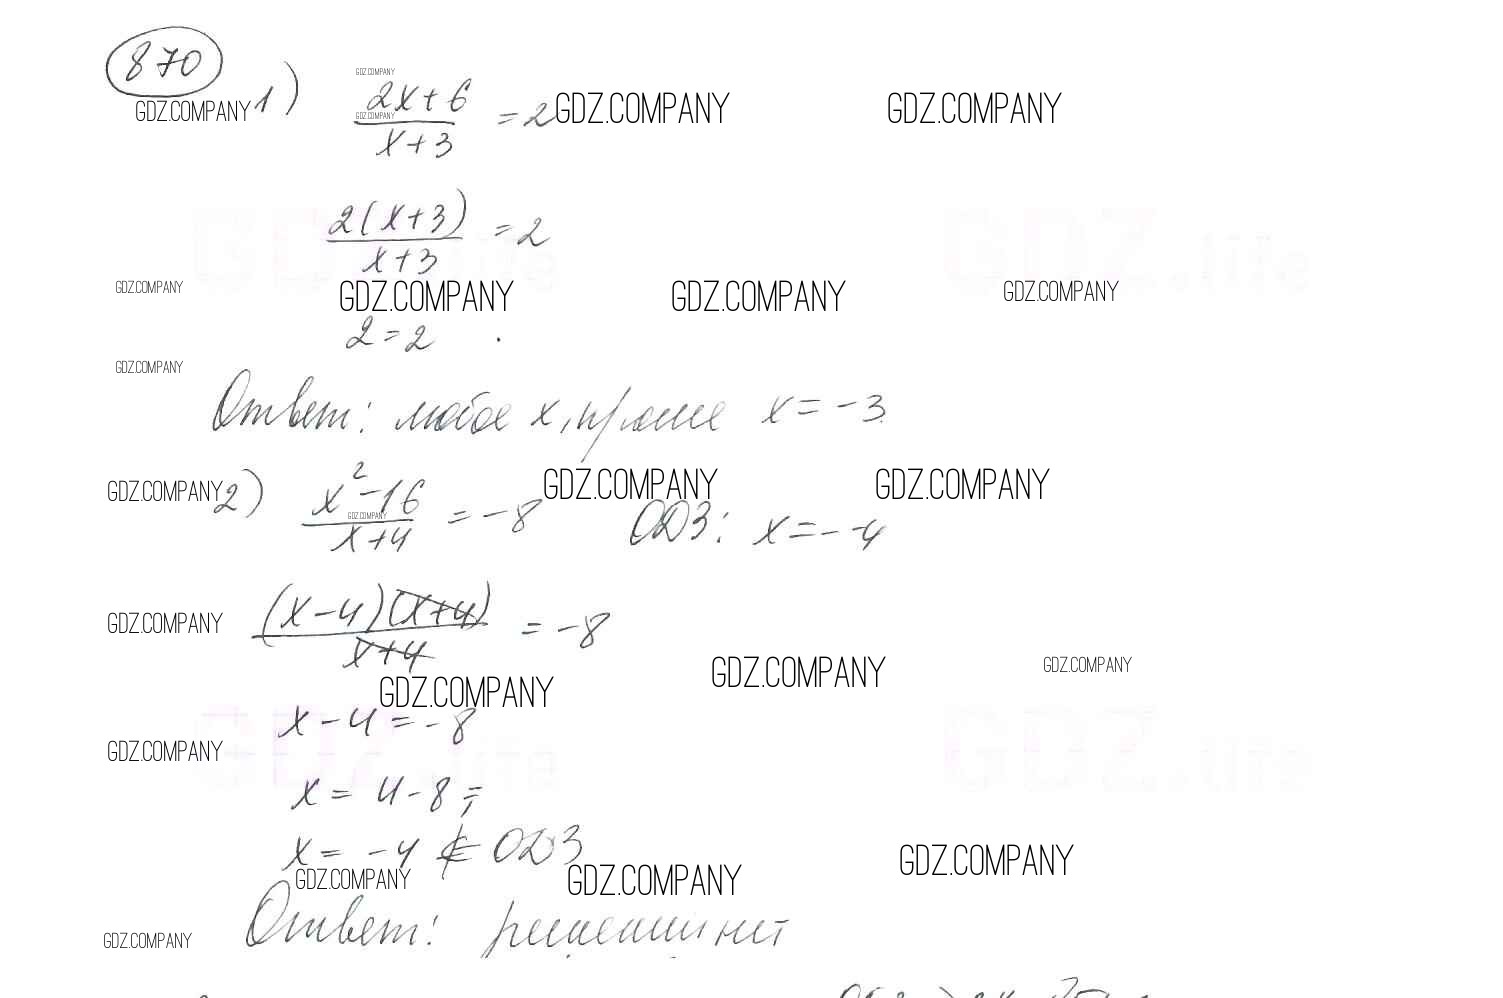 870
1) 2x+6 / x+3 = 2
GDZ.COMPANY
GDZ.COMPANY
GDZ.COMPANY GDZ.COMPANY GDZ.COMPANY
2(x+3) / x+3 = 2
GDZ.life GDZ.life
GDZ.COMPANY GDZ.COMPANY GDZ.COMPANY GDZ.COMPANY
2=2 .
GDZ.COMPANY
Ответ: любое x, кроме x = -3
GDZ.COMPANY GDZ.COMPANY GDZ.COMPANY
2) x²-16 / x+4 = -8 ОДЗ: x = -4
GDZ.COMPANY
(x-4)(x+4) / x+4 = -8
GDZ.COMPANY
GDZ.COMPANY GDZ.COMPANY GDZ.COMPANY
x-4=-8
GDZ.life GDZ.life
GDZ.COMPANY
x = 4-8;
x = -4 ∉ ОДЗ
GDZ.COMPANY GDZ.COMPANY GDZ.COMPANY
Ответ: решений нет
GDZ.COMPANY